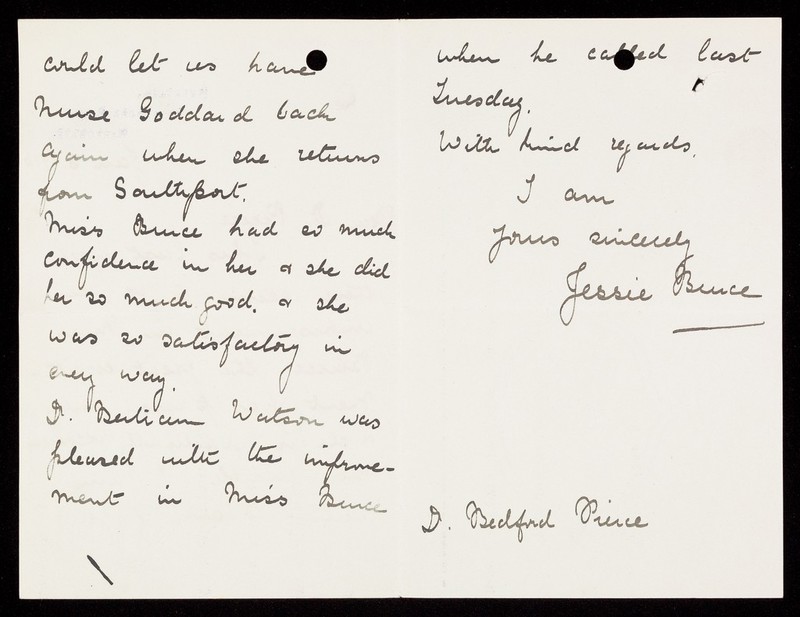 could let us have
Nurse Goddard back
again when she returns
from Southport.
Miss Bruce had so much
confidence in her & she did
her so much good, & she
was so satisfactory in
every way.
Dr. Bertram Watson was
pleased with the improve-
ment in Miss Bruce
when he called last
Tuesday.
With kind regards,
I am
Yours sincerely
Jessie Bruce
Dr. Bedford Pierce